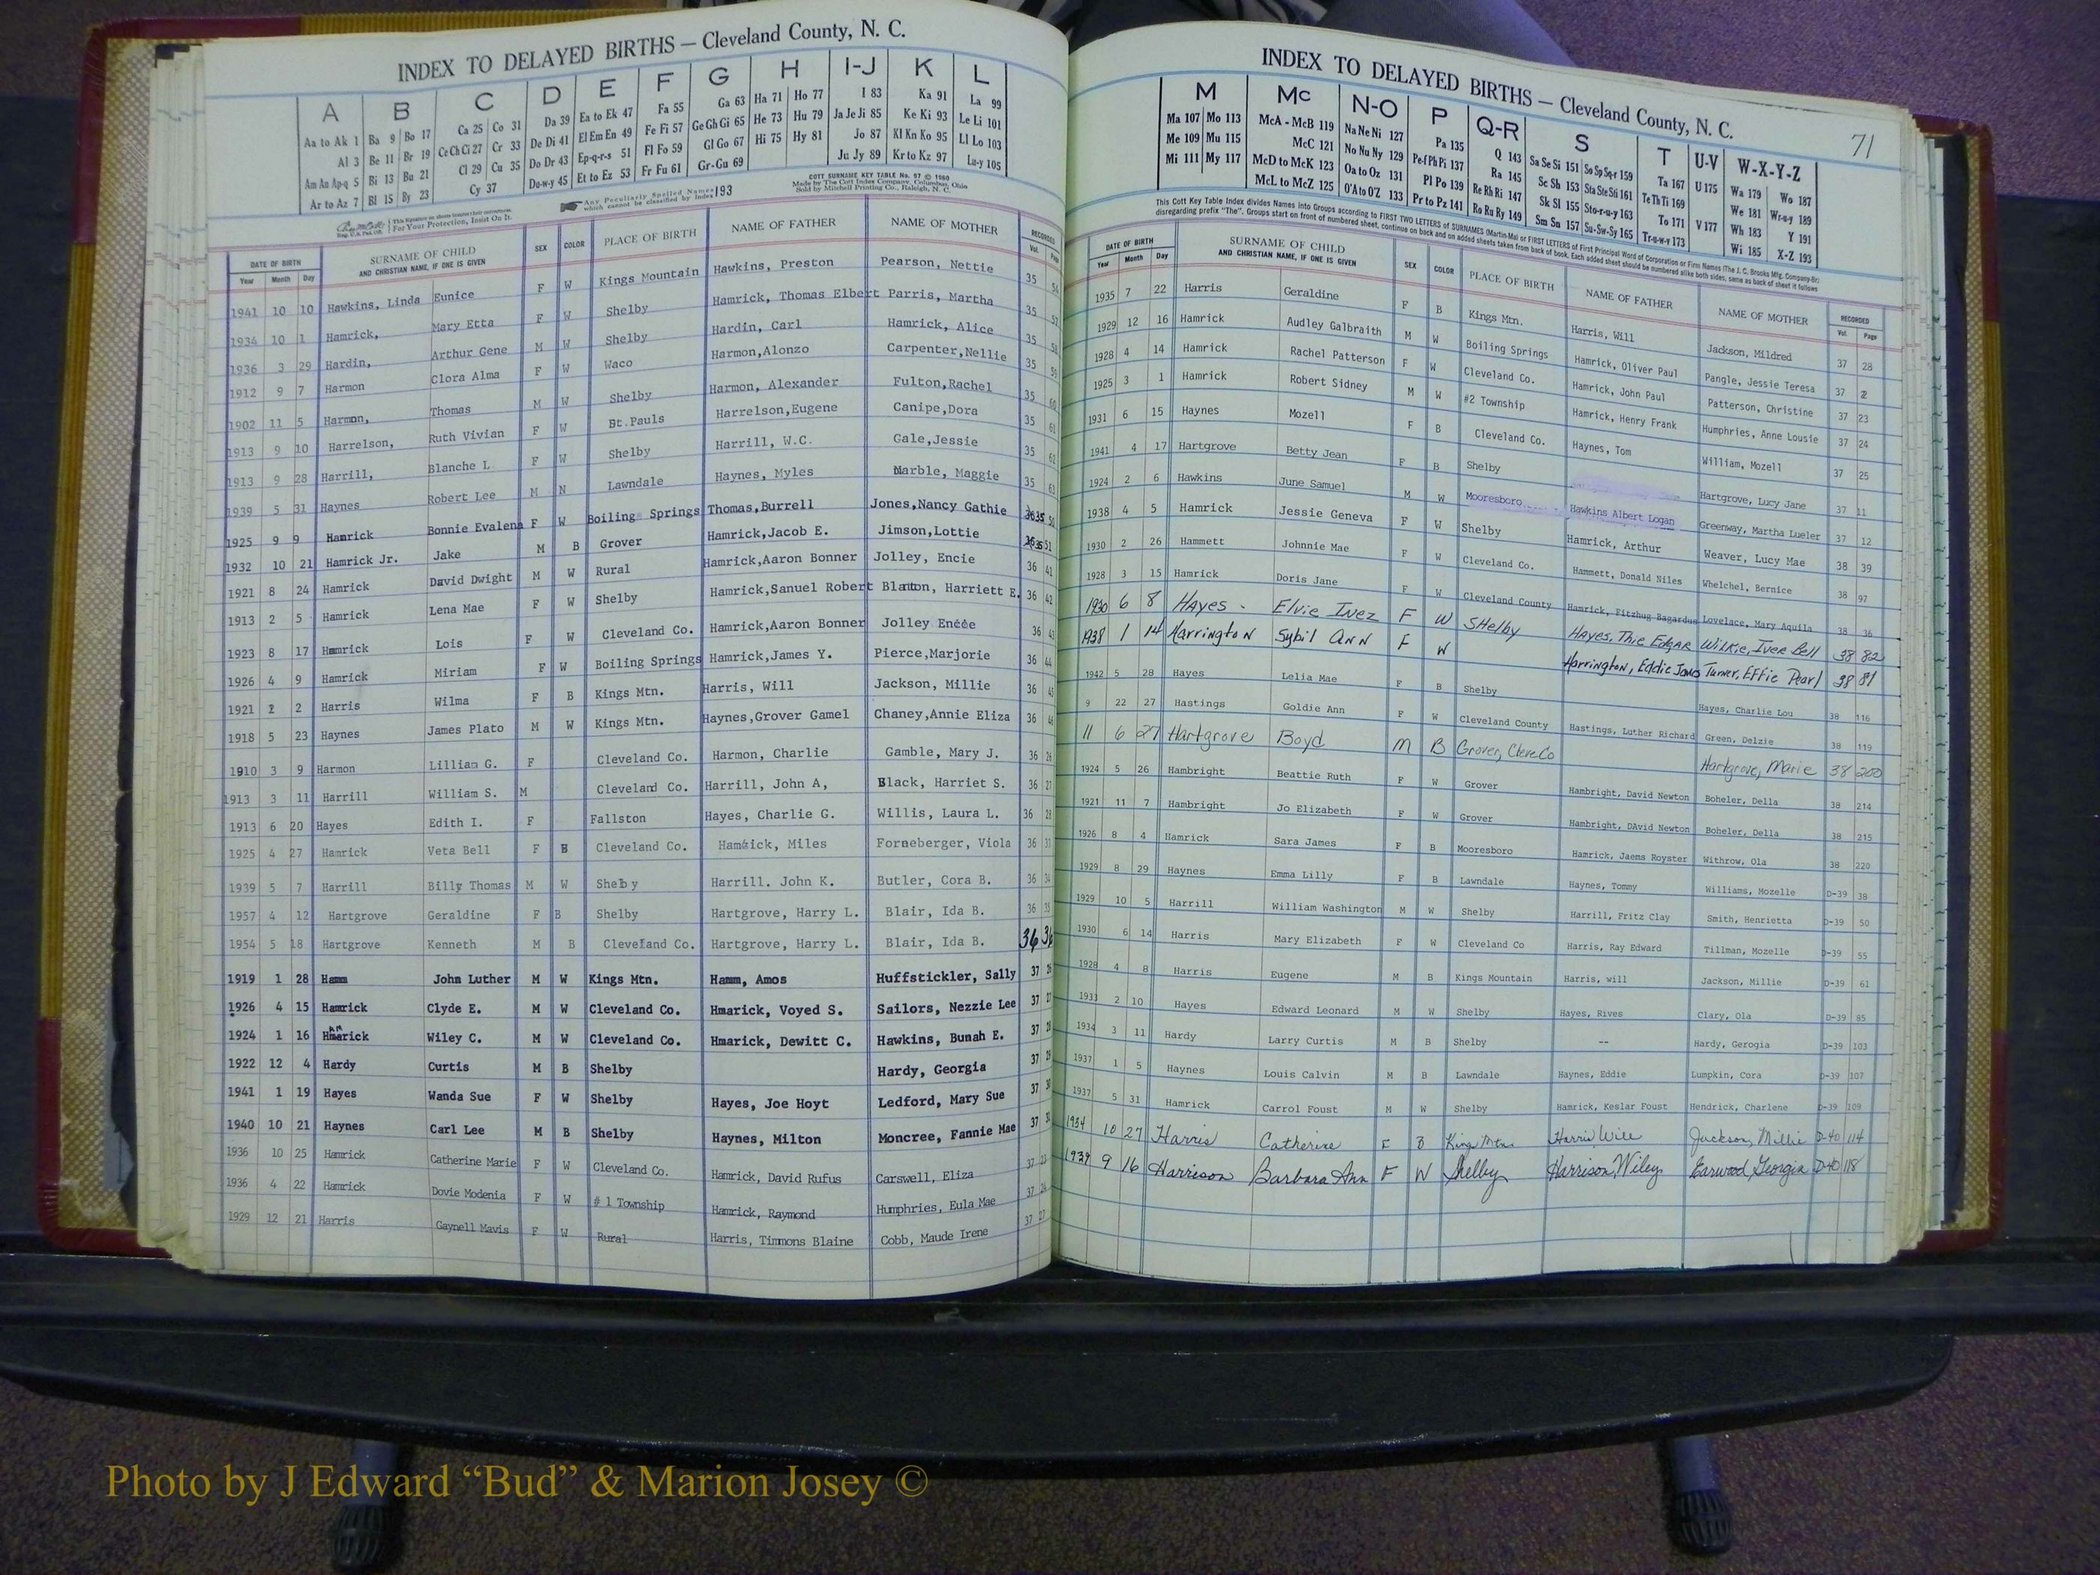 INDEX TO DELAYED BIRTHS — Cleveland County, N. C.
A B C D E F G H I-J K L
Aa to Ak 1 Ba 9 Bo 17 Ca 25 Co 31 Da 39 Ea to Ek 47 Fa 55 Ga 63 Ha 71 Ho 77 I 83 Ka 91 La 99
Al 3 Be 11 Br 19 Ce Ch Ci 27 Cr 33 De Di 41 El Em En 49 Fe Fi 57 Ge Gh Gi 65 He 73 Hu 79 Ja Je Ji 85 Ke Ki 93 Le Li 101
Am An Ap-q 5 Bi 13 Bu 21 Cl 29 Cu 35 Do Dr 43 Ep-q-r-s 51 Fl Fo 59 Gl Go 67 Hi 75 Hy 81 Jo 87 Kl Kn Ko 95 Ll Lo 103
Ar to Az 7 Bl 15 By 23 Cy 37 Du-w-y 45 Et to Ez 53 Fr Fu 61 Gr-Gu 69 Ju Jy 89 Kr to Kz 97 Lu-y 105
For Your Protection, Insist On It.
Any Peculiarly Spelled Names which cannot be classified by Index 193
COTT SURNAME KEY TABLE No. 97 © 1980
Made by The Cott Index Company, Columbus, Ohio
Sold by Mitchell Printing Co., Raleigh, N. C.
DATE OF BIRTH SURNAME OF CHILD AND CHRISTIAN NAME, IF ONE IS GIVEN SEX COLOR PLACE OF BIRTH NAME OF FATHER NAME OF MOTHER RECORDED
Year Month Day Vol. Page
1941 10 10 Hawkins, Linda Eunice F W Kings Mountain Hawkins, Preston Pearson, Nettie 35
1934 10 1 Hamrick, Mary Etta F W Shelby Hamrick, Thomas Elbert Parris, Martha 35
1936 3 29 Hardin, Arthur Gene M W Shelby Hardin, Carl Hamrick, Alice 35
1912 9 7 Harmon Clora Alma F W Waco Harmon,Alonzo Carpenter,Nellie 35
1902 11 5 Harmon, Thomas M W Shelby Harmon, Alexander Fulton,Rachel 35
1913 9 10 Harrelson, Ruth Vivian F W Bt.Pauls Harrelson,Eugene Canipe,Dora 35
1913 9 28 Harrill, Blanche L F W Shelby Harrill, W.C. Gale,Jessie 35
1939 5 31 Haynes Robert Lee M N Lawndale Haynes, Myles Marble, Maggie 35
1925 9 9 Hamrick Bonnie Evalena F W Boiling Springs Thomas,Burrell Jones,Nancy Gathie 35
1932 10 21 Hamrick Jr. Jake M B Grover Hamrick,Jacob E. Jimson,Lottie 35 51
1921 8 24 Hamrick David Dwight M W Rural Hamrick,Aaron Bonner Jolley, Encie 36 41
1913 2 5 Hamrick Lena Mae F W Shelby Hamrick,Sanuel Robert Blanton, Harriett E. 36 42
1923 8 17 Hamrick Lois F W Cleveland Co. Hamrick,Aaron Bonner Jolley 36 43
1926 4 9 Hamrick Miriam F W Boiling Springs Hamrick,James Y. Pierce,Marjorie 36 44
1921 2 2 Harris Wilma F B Kings Mtn. Harris, Will Jackson, Millie 36
1918 5 23 Haynes James Plato M W Kings Mtn. Haynes,Grover Gamel Chaney,Annie Eliza 36 46
1910 3 9 Harmon Lillian G. F Cleveland Co. Harmon, Charlie Gamble, Mary J. 36 26
1913 3 11 Harrill William S. M Cleveland Co. Harrill, John A, Black, Harriet S. 36 27
1913 6 20 Hayes Edith I. F Fallston Hayes, Charlie G. Willis, Laura L. 36 28
1925 4 27 Hamrick Veta Bell F B Cleveland Co. Hamrick, Miles Forneberger, Viola 36
1939 5 7 Harrill Billy Thomas M W Shelby Harrill. John K. Butler, Cora B. 36 34
1957 4 12 Hartgrove Geraldine F B Shelby Hartgrove, Harry L. Blair, Ida B. 36 35
1954 5 18 Hartgrove Kenneth M B Cleveland Co. Hartgrove, Harry L. Blair, Ida B. 36
1919 1 28 Hamm John Luther M W Kings Mtn. Hamm, Amos Huffstickler, Sally 37
1926 4 15 Hamrick Clyde E. M W Cleveland Co. Hmarick, Voyed S. Sailors, Nezzie Lee 37
1924 1 16 Hmarick Wiley C. M W Cleveland Co. Hmarick, Dewitt C. Hawkins, Bunah E. 37
1922 12 4 Hardy Curtis M B Shelby Hardy, Georgia 37
1941 1 19 Hayes Wanda Sue F W Shelby Hayes, Joe Hoyt Ledford, Mary Sue 37
1940 10 21 Haynes Carl Lee M B Shelby Haynes, Milton Moncree, Fannie Mae 37
1936 10 25 Hamrick Catherine Marie F W Cleveland Co. Hamrick, David Rufus Carswell, Eliza 37
1936 4 22 Hamrick Dovie Modenia F W # 1 Township Hamrick, Raymond Humphries, Eula Mae 37
1929 12 21 Harris Gaynell Mavis F W Rural Harris, Timmons Blaine Cobb, Maude Irene 37
INDEX TO DELAYED BIRTHS — Cleveland County, N. C.
71
M Mc N-O P Q-R S T U-V W-X-Y-Z
Ma 107 Mo 113 McA - McB 119 Na Ne Ni 127 Pa 135 Q 143 Sa Se Si 151 So Sp Sq-r 159 Ta 167 U 175 Wa 179 Wo 187
Me 109 Mu 115 McC 121 No Nu Ny 129 Pe-f Ph Pi 137 Ra 145 Sc Sh 153 Sta Ste Sti 161 Te Th Ti 169 We 181 Wr-u-y 189
Mi 111 My 117 McD to McK 123 Oa to Oz 131 Pl Po 139 Re Rh Ri 147 Sk Sl 155 Sto-r-u-y 163 To 171 V 177 Wh 183 Y 191
McL to McZ 125 O'A to O'Z 133 Pr to Pz 141 Ro Ru Ry 149 Sm Sn 157 Su-Sw-Sy 165 Tr-u-w-y 173 Wi 185 X-Z 193
This Cott Key Table Index divides Names into Groups according to FIRST TWO LETTERS of SURNAMES (Martin-Ma) or FIRST LETTERS of First Principal Word of Corporation or Firm Names (The J. C. Brooks Mfg. Company-Br)
disregarding prefix "The". Groups start on front of numbered sheet, continue on back and on added sheets taken from back of book. Each added sheet should be numbered alike both sides, same as back of sheet it follows
DATE OF BIRTH SURNAME OF CHILD AND CHRISTIAN NAME, IF ONE IS GIVEN SEX COLOR PLACE OF BIRTH NAME OF FATHER NAME OF MOTHER RECORDED
Year Month Day Vol. Page
1935 7 22 Harris Geraldine F B Kings Mtn. Harris, Will Jackson, Mildred 37 28
1929 12 16 Hamrick Audley Galbraith M W Boiling Springs Hamrick, Oliver Paul Pangle, Jessie Teresa 37
1928 4 14 Hamrick Rachel Patterson F W Cleveland Co. Hamrick, John Paul Patterson, Christine 37 23
1925 3 1 Hamrick Robert Sidney M W #2 Township Hamrick, Henry Frank Humphries, Anne Lousie 37 24
1931 6 15 Haynes Mozell F B Cleveland Co. Haynes, Tom William, Mozell 37 25
1941 4 17 Hartgrove Betty Jean F B Shelby Hartgrove, Lucy Jane 37 11
1924 2 6 Hawkins June Samuel M W Mooresboro Hawkins Albert Logan Greenway, Martha Lueler 37 12
1938 4 5 Hamrick Jessie Geneva F W Shelby Hamrick, Arthur Weaver, Lucy Mae 38 39
1930 2 26 Hammett Johnnie Mae F W Cleveland Co. Hammett, Donald Niles Whelchel, Bernice 38 97
1928 3 15 Hamrick Doris Jane F W Cleveland County Hamrick, Fitzhug Bagardus Lovelace, Mary Aquila 38 36
1930 6 8 Hayes - Elvie Inez F W Shelby Hayes, Thie Edgar Wilkie, Iver Bell 38 82
1938 1 14 Harrington Sybil Ann F W Harrington, Eddie Jams Turner, Effie Pearl 38 81
1942 5 28 Hayes Lelia Mae F B Shelby Hayes, Charlie Lou 38 116
9 22 27 Hastings Goldie Ann F W Cleveland County Hastings, Luther Richard Green, Delzie 38 119
11 6 27 Hartgrove Boyd M B Grover, Cleve Co Hartgrove, Marie 38 200
1924 5 26 Hambright Beattie Ruth F W Grover Hambright, David Newton Boheler, Della 38 214
1921 11 7 Hambright Jo Elizabeth F W Grover Hambright, DAvid Newton Boheler, Della 38 215
1926 8 4 Hamrick Sara James F B Mooresboro Hamrick, Jaems Royster Withrow, Ola 38 220
1929 8 29 Haynes Emma Lilly F B Lawndale Haynes, Tommy Williams, Mozelle D-39 38
1929 10 5 Harrill William Washington M W Shelby Harrill, Fritz Clay Smith, Henrietta D-39 50
1930 6 14 Harris Mary Elizabeth F W Cleveland Co Harris, Ray Edward Tillman, Mozelle D-39 55
1928 4 8 Harris Eugene M B Kings Mountain Harris, will Jackson, Millie D-39 61
1933 2 10 Hayes Edward Leonard M W Shelby Hayes, Rives Clary, Ola D-39 85
1934 3 11 Hardy Larry Curtis M B Shelby -- Hardy, Gerogia D-39 103
1937 1 5 Haynes Louis Calvin M B Lawndale Haynes, Eddie Lumpkin, Cora D-39 107
1937 5 31 Hamrick Carrol Foust M W Shelby Hamrick, Keslar Foust Hendrick, Charlene D-39 109
1934 10 27 Harris Catherine F B Kings Mtn Harris Will Jackson, Millie D-40 114
1939 9 16 Harrison Barbara Ann F W Shelby Harrison, Wiley Earwood, Georgia D-40 118
Photo by J Edward “Bud” & Marion Josey ©